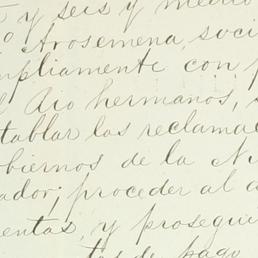 y seis y medio
Arosemena, soci
mpliamente con p
Rio hermanos,
tablar las reclama
obiernos de la N
ador; proceder al a
entas, y prosegui
tos de pago